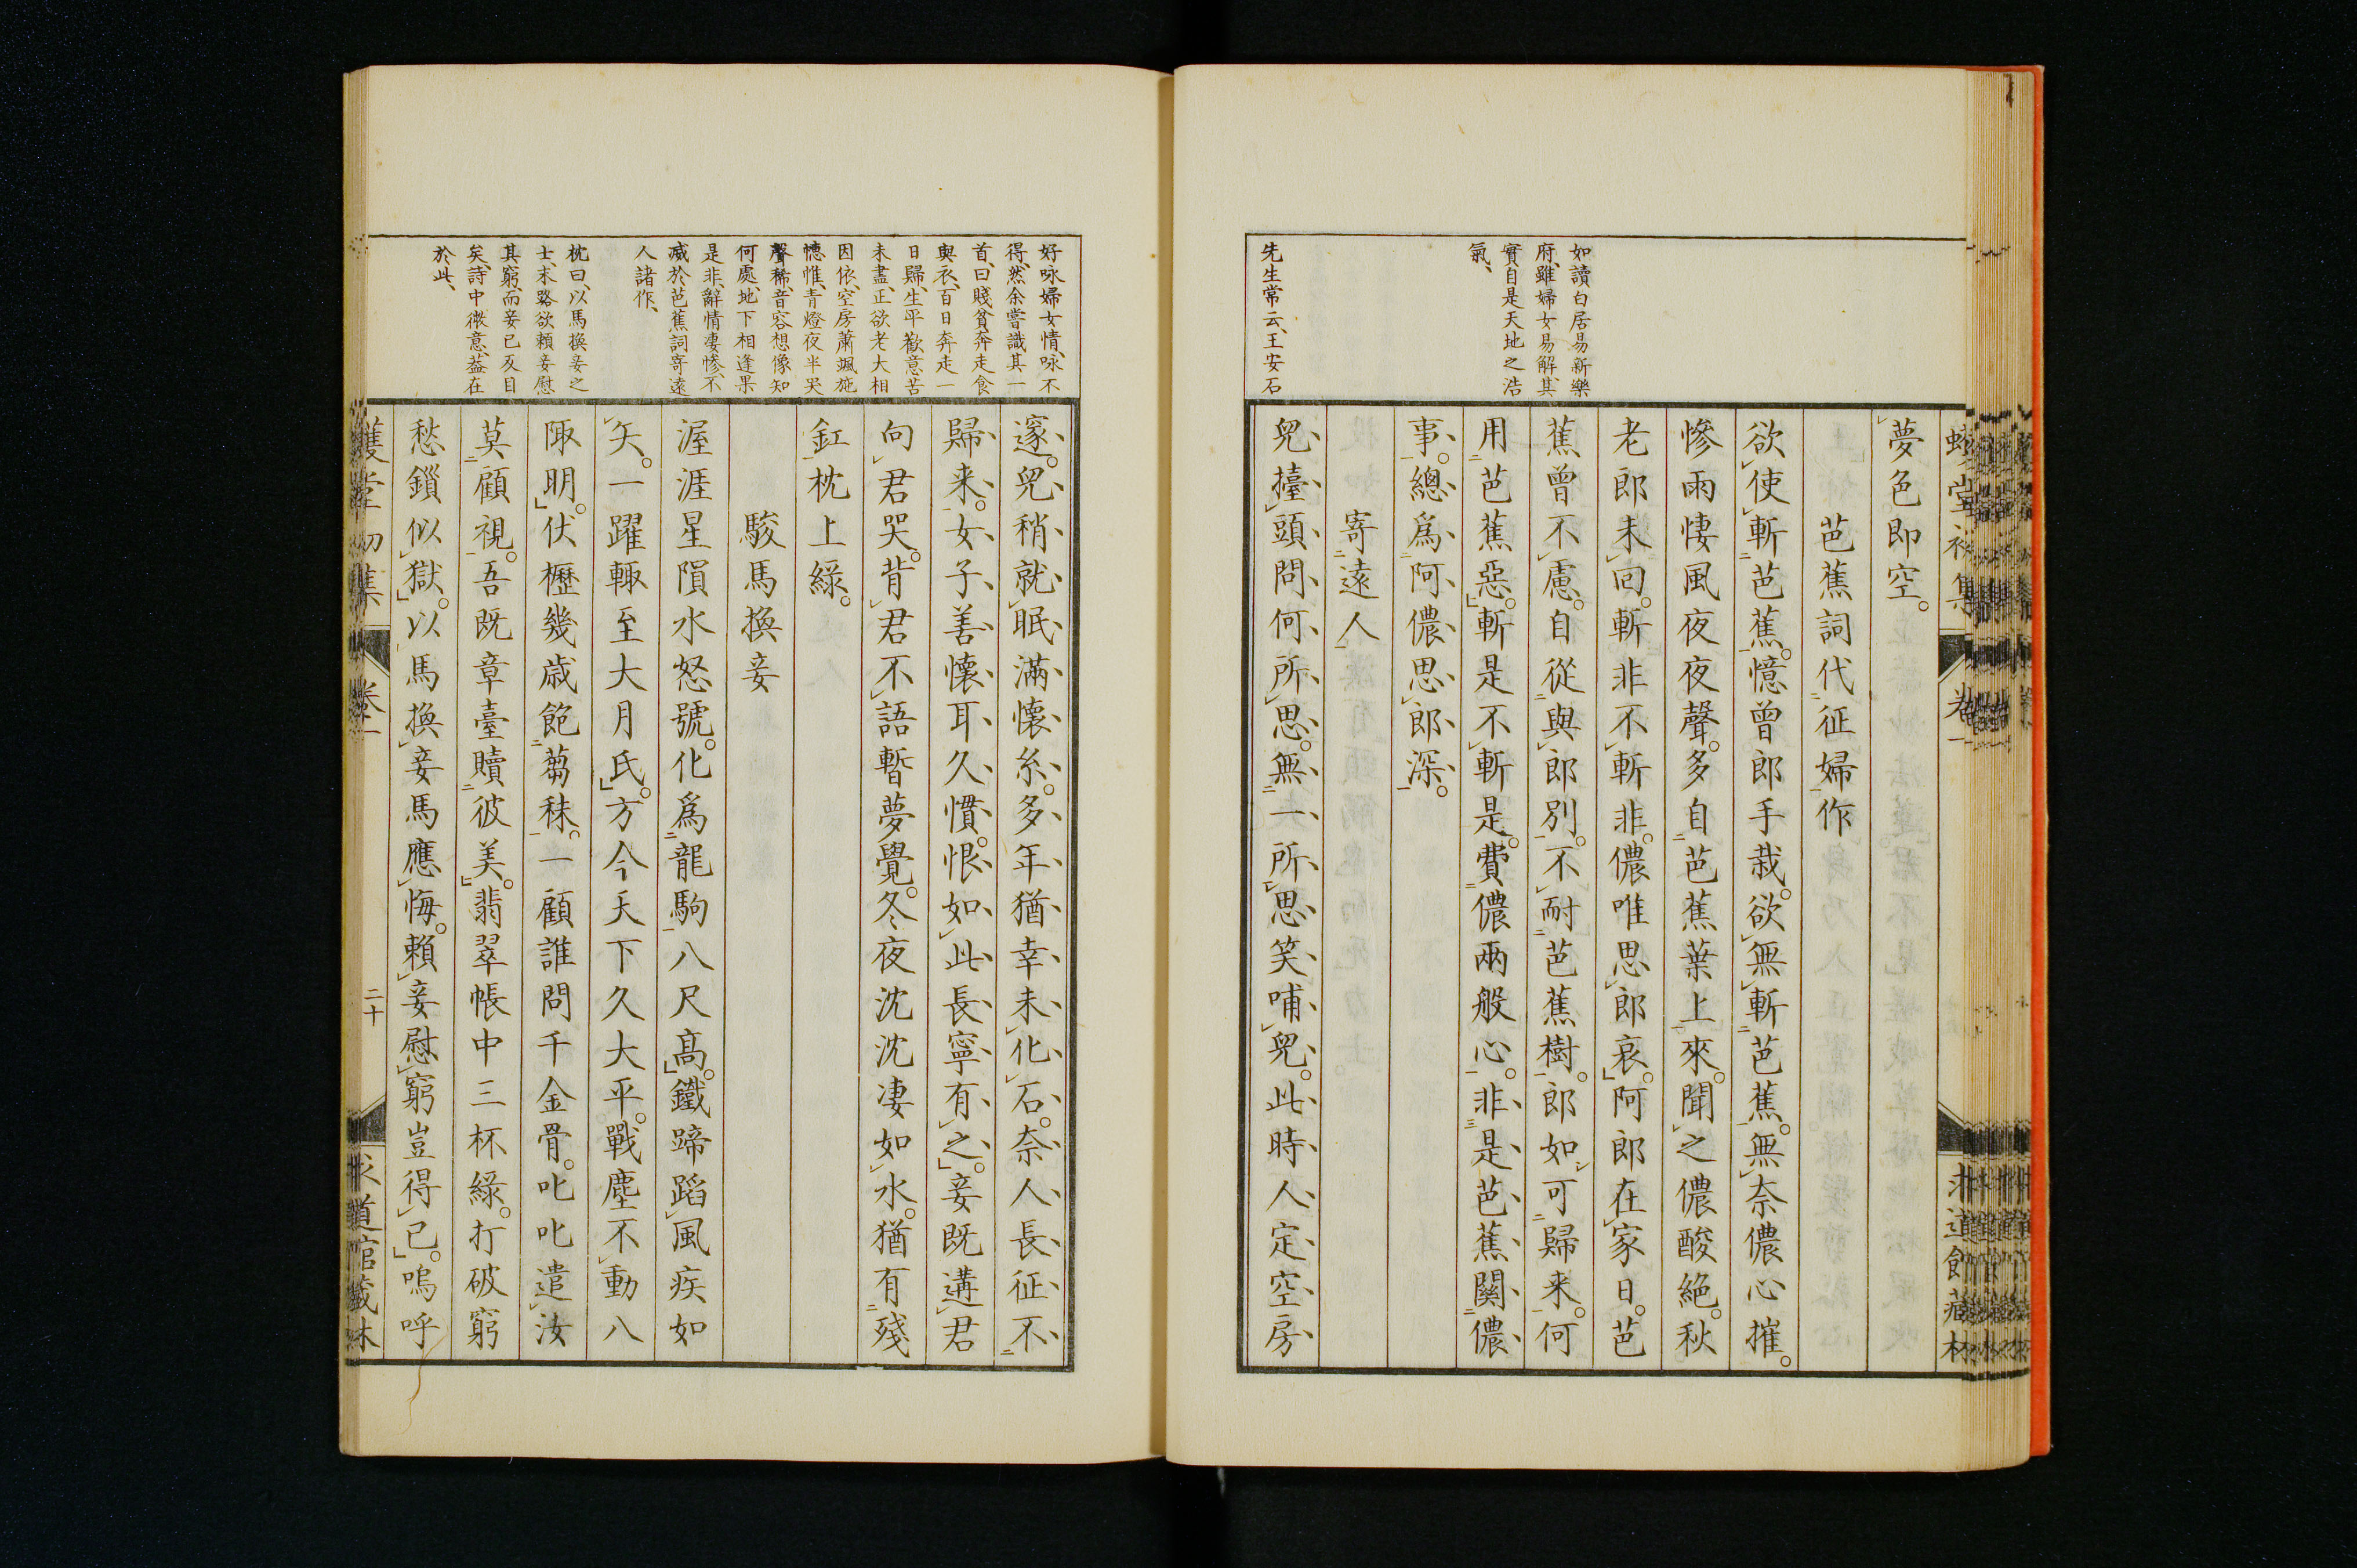 夢色即空。
芭蕉詞代二征婦一作
欲レ使レ斬二芭蕉一。憶曾郎手栽。欲レ無レ斬二芭蕉一。無レ奈儂心摧。
慘雨悽風夜夜聲。多自二芭蕉葉上一來。聞レ之儂酸絕。秋
老郎未レ回。斬非不レ斬非。儂唯思レ郎哀。阿郎在レ家日。芭
蕉曾不レ慮。自從二與レ郎別一。不レ耐二芭蕉樹一。郎如レ可二歸来一。何
用二芭蕉惡一。斬是不レ斬是。費二儂兩般心一。非三是芭蕉關二儂
事一。總爲二阿儂思レ郎深一。
寄二遠人一
兒擡レ頭問何所レ思。無二一所一レ思笑哺レ兒。此時人定空房
如讀白居易新樂
府、雖婦女易解、其
實自是天地之浩
氣、
先生常云、王安石
邃。兒稍就レ眠滿懷糸。多年猶幸未レ化レ石。奈人長征不二
歸来一。女子善懷耳久慣。恨如レ此長寧有レ之。妾既遘レ君
向レ君哭。背レ君不レ語暫夢覺。冬夜沈沈凄如レ水。猶有二殘
釭一枕上綠。
駿馬換妾
渥涯星隕水怒號。化爲二龍駒一八尺高。鐵蹄蹈レ風疾如
レ矢。一躍輙至大月氏。方今天下久大平。戰塵不レ動八
陬明。伏櫪幾歲飽二蒭秣一。一顧誰問千金骨。叱叱遣レ汝
莫二顧視一。吾既章臺贖二彼美一。翡翠帳中三杯綠。打破窮
愁鎖似レ獄。以レ馬換レ妾馬應レ悔。賴レ妾慰レ窮豈得レ已。嗚呼
好咏婦女情、咏不
得、然余嘗識其一
首、曰賤貧奔走食
與衣、百日奔走一
日歸、生平歡意苦
未盡、正欲老大相
因依、空房蕭颯施
幰惟、青燈夜半哭
聲稀、音容想像知
何處、地下相逢果
是非、辭情凄慘、不
減於芭蕉詞寄遠
人諸作、
枕曰、以馬換妾之
士、末路欲賴妾慰
其窮、而妾已反目
矣、詩中微意、葢在
於此、
卷一
二十